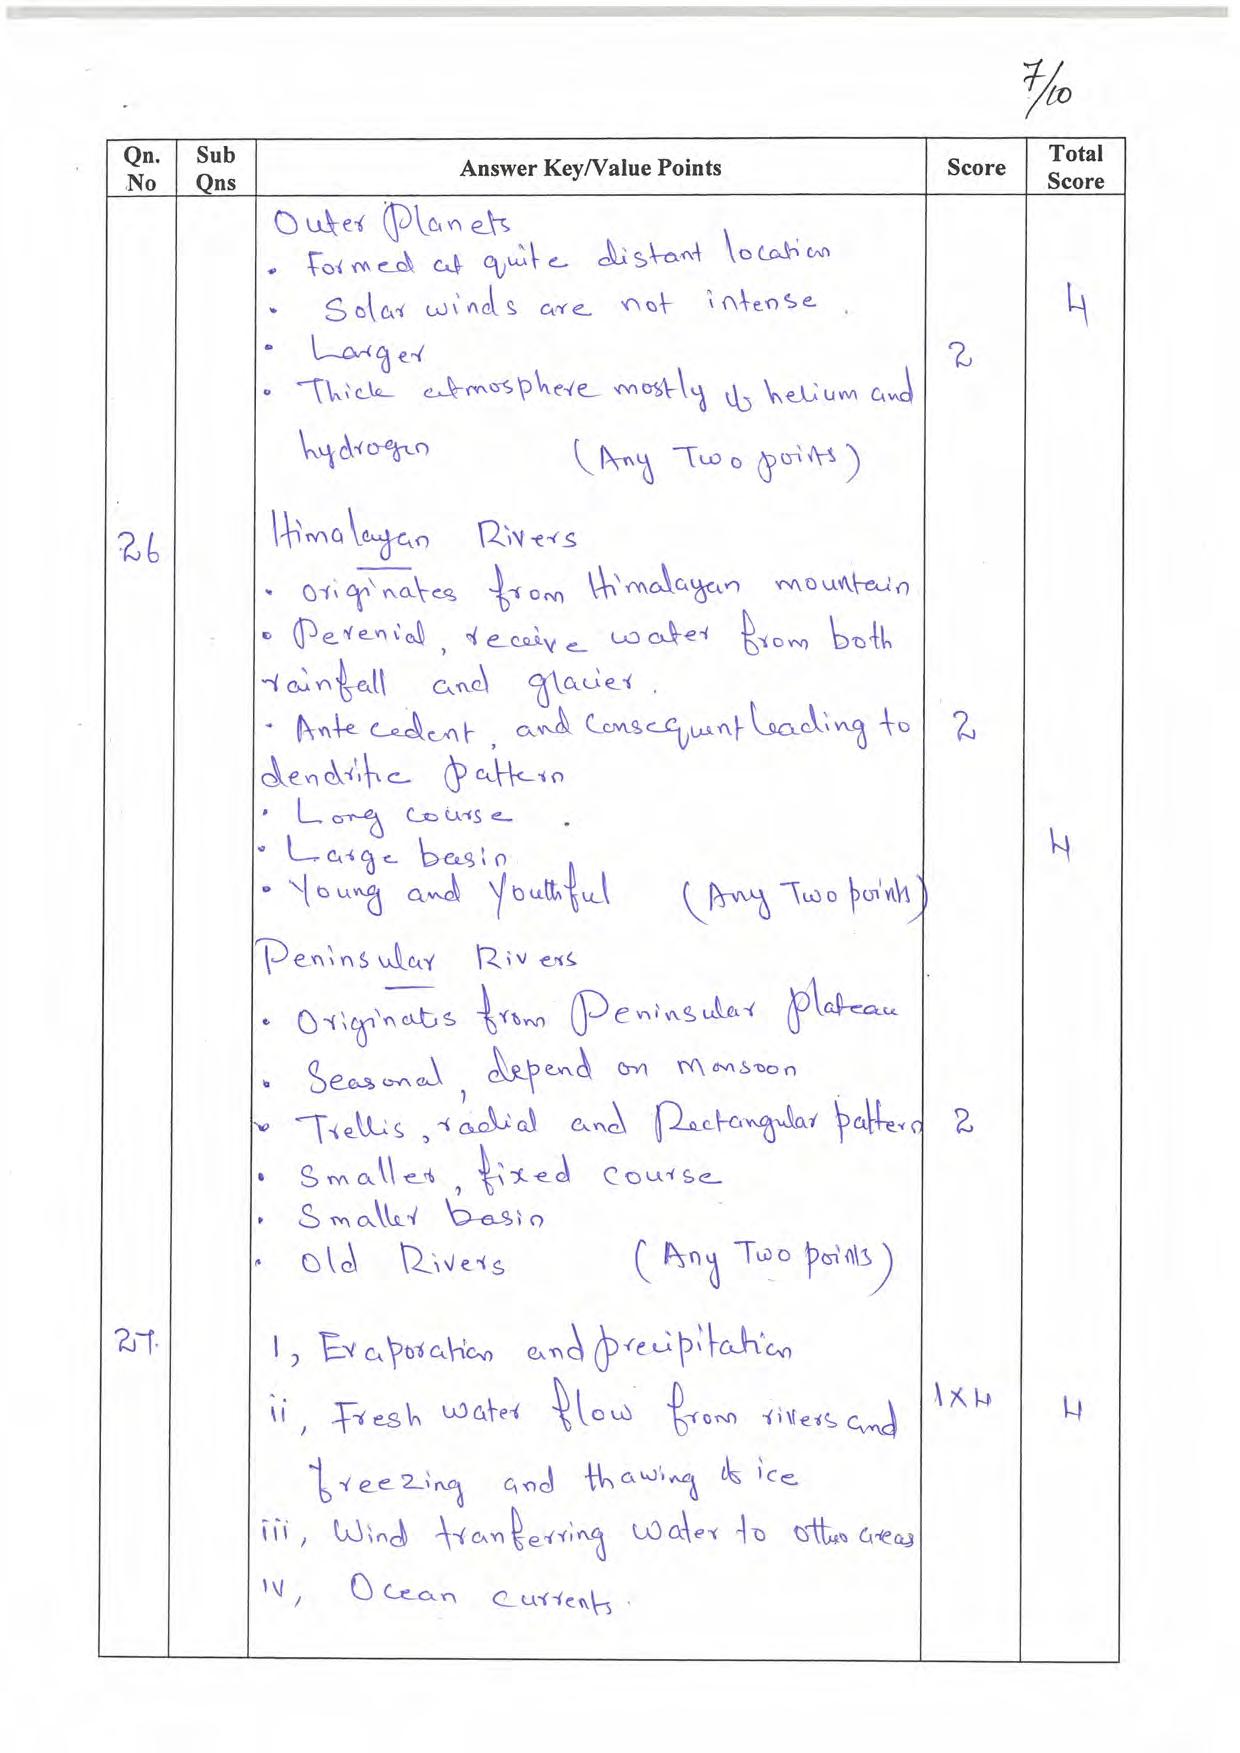 7/10
Qn. No | Sub Qns | Answer Key/Value Points | Score | Total Score
Outer Planets
• Formed at quite distant location
• Solar winds are not intense . 4
• Larger 2
• Thick atmosphere mostly of helium and
hydrogen (Any Two points)
26 Himalayan Rivers
• originates from Himalayan mountain
• Perenial, receive water from both
rainfall and glacier.
• Antecedent, and Consequent leading to 2
dendritic pattern
• Long course .
• Large basin 4
• Young and Youthful (Any Two points)
Peninsular Rivers
• Originates from Peninsular plateau
• Seasonal, depend on monsoon
• Trellis, radial and Rectangular pattern 2
• Smaller, fixed course
• Smaller basin
• Old Rivers (Any Two points)
27. 1, Evaporation and precipitation
ii, Fresh water flow from rivers and 1×4 4
freezing and thawing of ice
iii, Wind tranferring water to other areas
iv, Ocean currents.